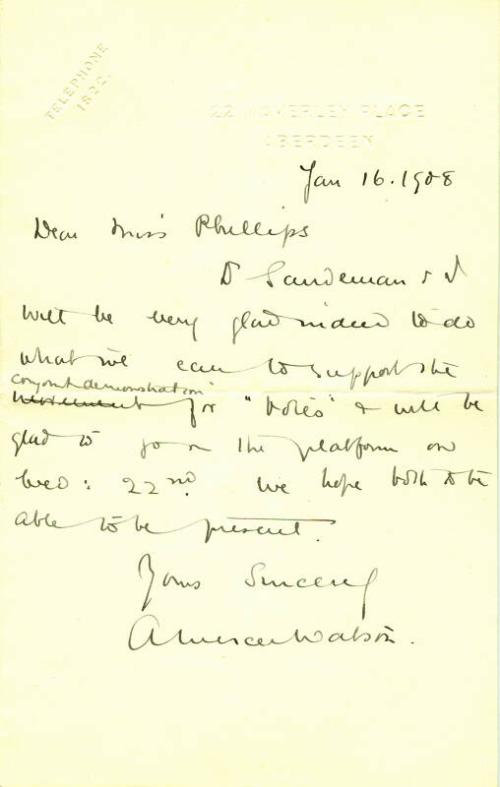 TELEPHONE
1822.
22 WAVERLEY PLACE
ABERDEEN
Jan 16. 1908
Dear Miss Phillips
Dr Sandeman & I
will be very glad indeed to do
what we can to support the
conjoint demonstration
movement for "Votes" & will be
glad to go on the platform on
Wed: 22nd. We hope both to be
able to be present.
Yours Sincerely
A Mercer Watson.